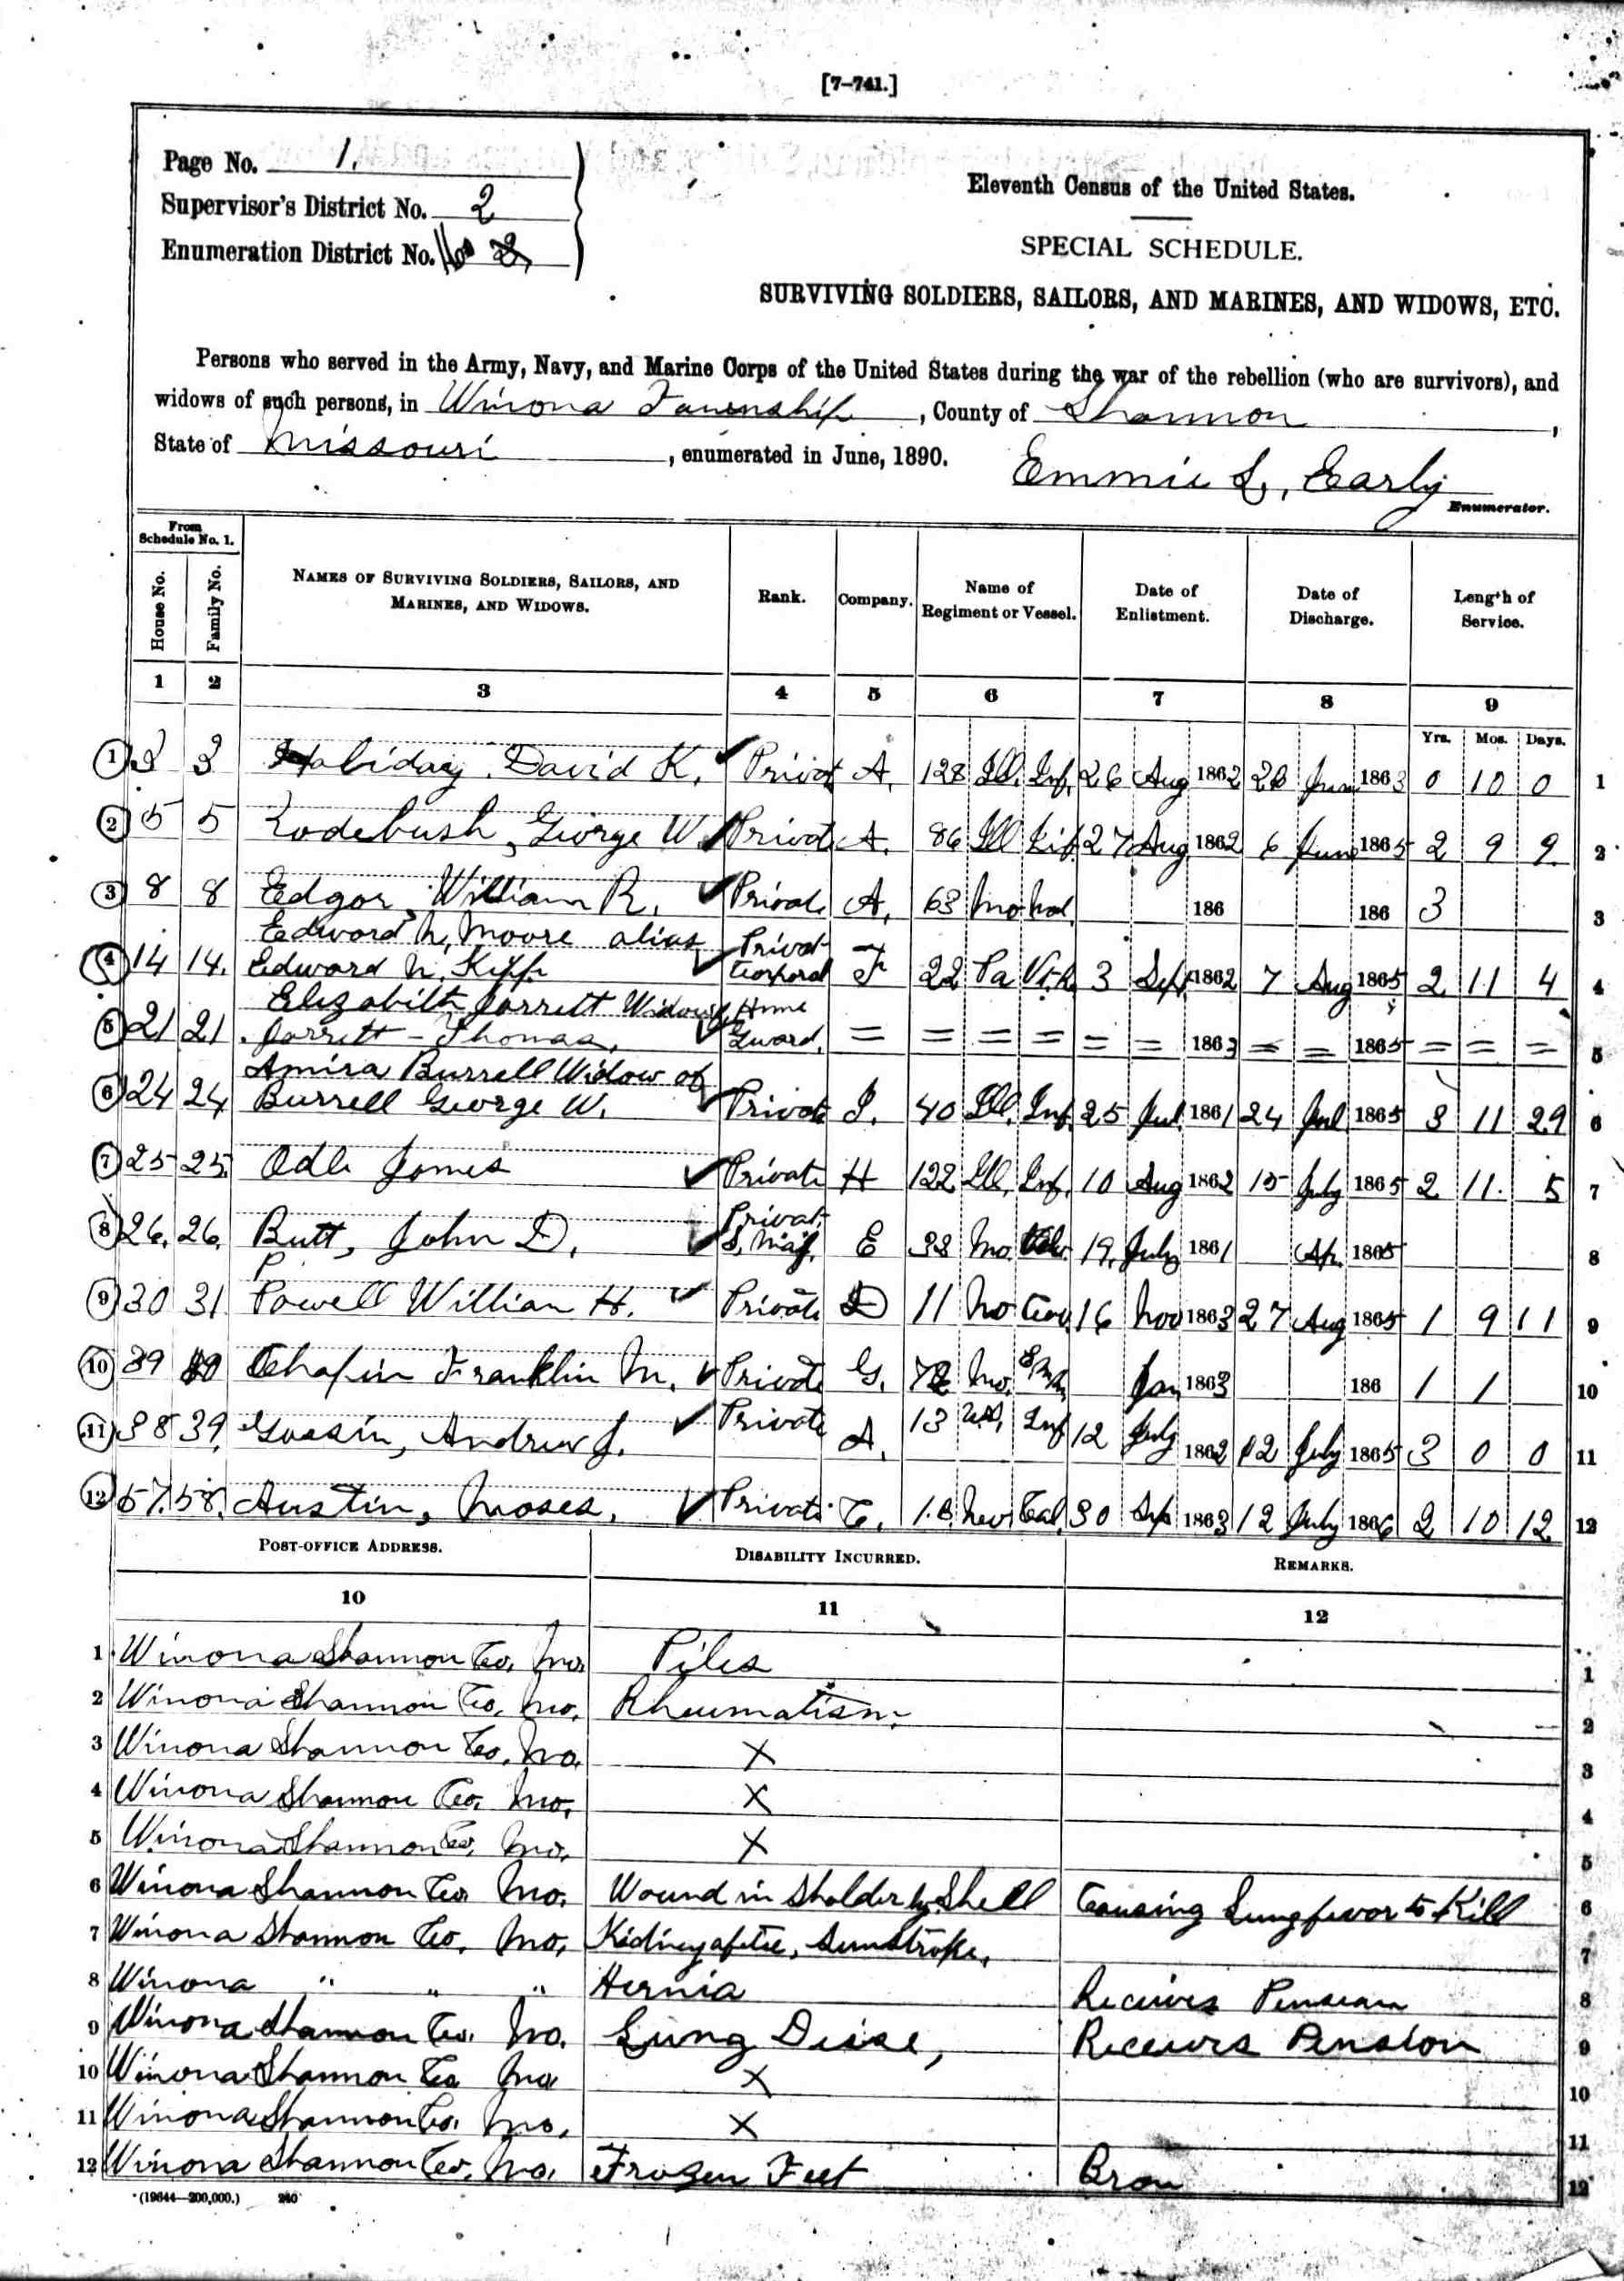 [7-741.]
Page No. 1.
Supervisor's District No. 2
Enumeration District No.
Eleventh Census of the United States.
SPECIAL SCHEDULE.
SURVIVING SOLDIERS, SAILORS, AND MARINES, AND WIDOWS, ETC.
Persons who served in the Army, Navy, and Marine Corps of the United States during the war of the rebellion (who are survivors), and
widows of such persons, in Winona Township, County of Shannon,
State of Missouri, enumerated in June, 1890. Emmie L. Early
Enumerator.
From Schedule No. 1.
House No. Family No. NAMES OF SURVIVING SOLDIERS, SAILORS, AND MARINES, AND WIDOWS. Rank. Company. Name of Regiment or Vessel. Date of Enlistment. Date of Discharge. Length of Service.
1 2 3 4 5 6 7 8 9
Yrs. Mos. Days.
1 3 3 Haliday David K. Privat A. 128 Ill. Inf. 26 Aug 1862 26 Jun 1863 0 10 0 1
2 5 5 Rodebush, George W. Privat A. 86 Ill Inf 27 Aug 1862 6 June 1865 2 9 9 2
3 8 8 Edgar, William R. Privat A. 63 Mo 186 186 3 3
Edward N. Moore alias Privat
4 14 14. Edward N. Kipp Corporal F 22 Pa 3 Sept 1862 7 Aug 1865 2 11 4 4
Elizabith Jarrett Widow of Home
5 21 21 Jarrett - Thomas, Guard. = = = = = = 1863 = = 1865 = = = 5
Amira Burrell Widow of
6 24 24 Burrell George W. Private I. 40 Ill. Inf. 25 Jul 1861 24 Jul 1865 3 11 29 6
7 25 25. Odle James Private H 122 Ill. Inf. 10 Aug 1862 15 July 1865 2 11. 5 7
Privat
8 26. 26. Butt, John D. S. Maj. E 33 Mo. 19. July 1861 Ap. 1865 8
9 30 31 Powell William H. Private D 11 Mo Cav 16 Nov 1863 27 Aug 1865 1 9 11 9
10 39 Chapin Franklin M. Private G. Mo. Jan 1863 186 1 1 10
11 38 39. Goasin, Andrew J. Private A. 13 Inf 12 July 1862 12 July 1865 3 0 0 11
12 57. 58. Austin, Moses, Private C. Nev Cal. 30 Sep 1863 12 July 1866 2 10 12 12
POST-OFFICE ADDRESS. DISABILITY INCURRED. REMARKS.
10 11 12
1 Winona Shannon Co. Mo. Piles 1
2 Winona Shannon Co. Mo. Rheumatism. 2
3 Winona Shannon Co. Mo. X 3
4 Winona Shannon Co. Mo. X 4
5 Winona Shannon Co. Mo. X 5
6 Winona Shannon Co Mo. Wound in Sholder by Shell Causing Lungfevor to Kill 6
7 Winona Shannon Co. Mo. Sunstroke. 7
8 Winona " " " Hernia Recives Pension 8
9 Winona Shannon Co. Mo. Lung Disae, Receivs Pension 9
10 Winona Shannon Co Mo X 10
11 Winona Shannon Co. Mo. X 11
12 Winona Shannon Co. Mo. Frozen Feet 12
(19644—200,000.) 240